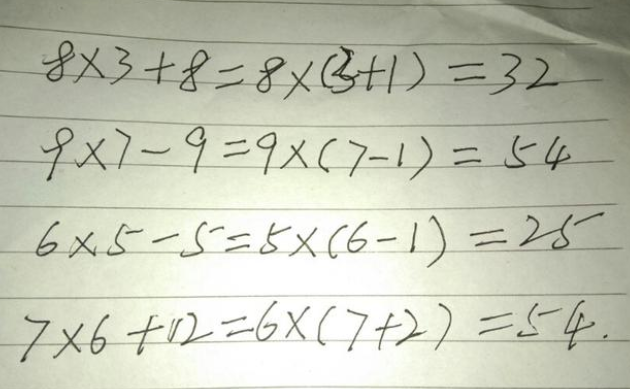 8×3+8=8×(3+1)=32
9×7-9=9×(7-1)=54
6×5-5=5×(6-1)=25
7×6+12=6×(7+2)=54.